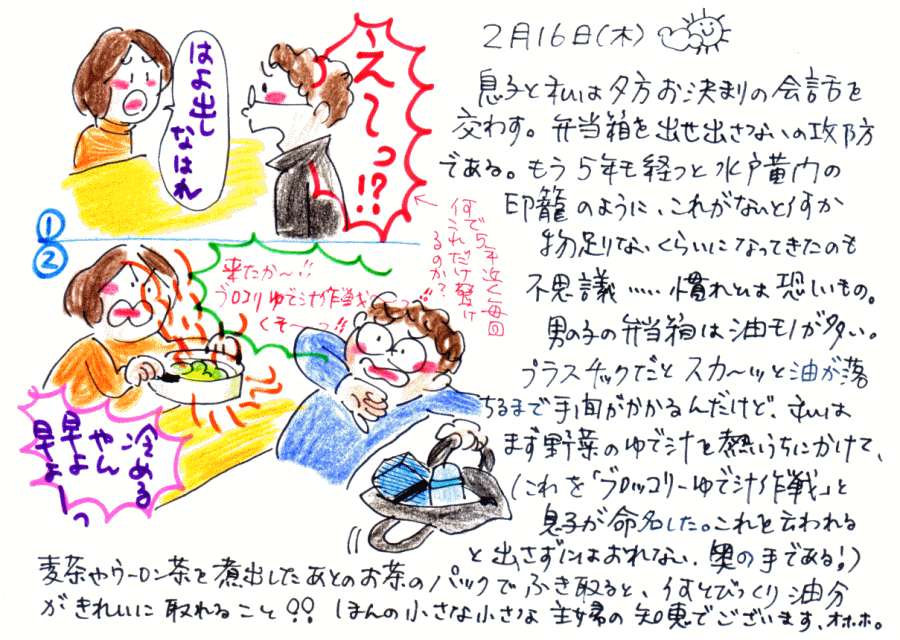 はよ出し
なはれ
えーっ!?
①
何で5年近く毎回
これだけ驚け
るのか?
②
来たか〜!!
ブロコリゆで汁作戦
くそーっ!!
冷める
やん
早よ
早よーっ
2月16日(木)
息子と私は夕方お決まりの会話を
交わす。弁当箱を出せ出さないの攻防
である。もう5年も経つと水戸黄門の
印籠のように、これがないと何か
物足りないくらいになってきたのも
不思議……慣れとは恐いもの。
男の子の弁当箱は油モノが多い。
プラスチックだとスカ〜ッと油が落
ちるまで手間がかかるんだけど、私は
まず野菜のゆで汁を熱いうちにかけて、
(これを「ブロッコリーゆで汁作戦」と
息子が命名した。これを云われる
と出さずにはおれない、奥の手である!)
麦茶やウーロン茶を煮出したあとのお茶のパックでふき取ると、何とびっくり油分
がきれいに取れること!!ほんの小さな小さな主婦の知恵でございます、オホホ。